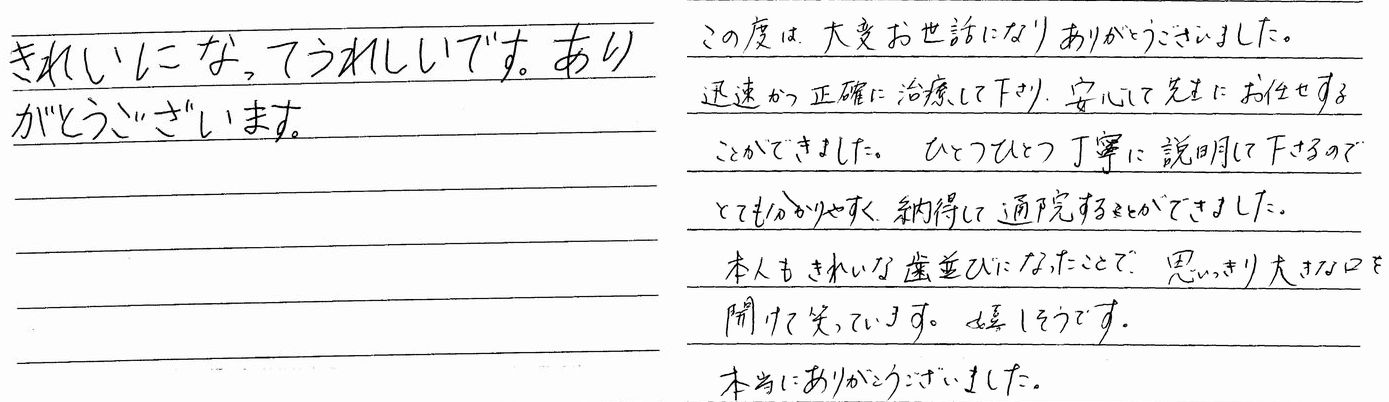 きれいになってうれしいです。あり
がとうございます。
この度は、大変お世話になりありがとうございました。
迅速かつ正確に治療して下さり、安心して先生にお任せする
ことができました。 ひとつひとつ丁寧に説明して下さるので
とても分かりやすく、納得して通院することができました。
本人もきれいな歯並びになったことで、思いっきり大きな口を
開けて笑っています。嬉しそうです。
本当にありがとうございました。